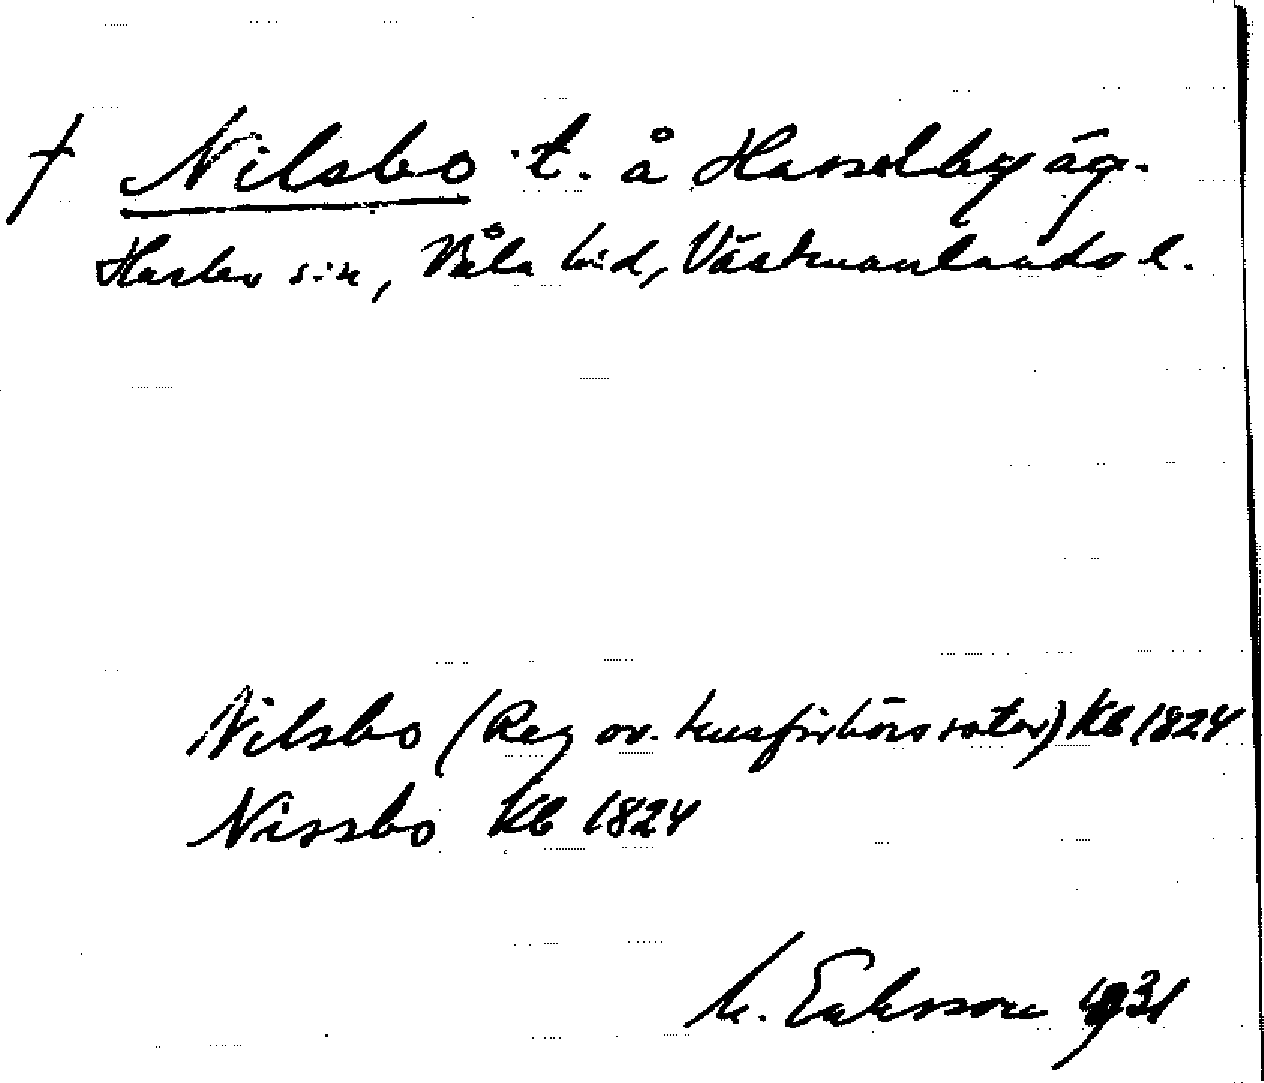 † Nilsbo t. å Hasselby äg.
Harbo s:n, Våla hd, Västmanlands l.
Nilsbo (Reg öv. husförhörsrotar) Kb 1824
Nissbo Kb 1824
M. Eriksson 1931